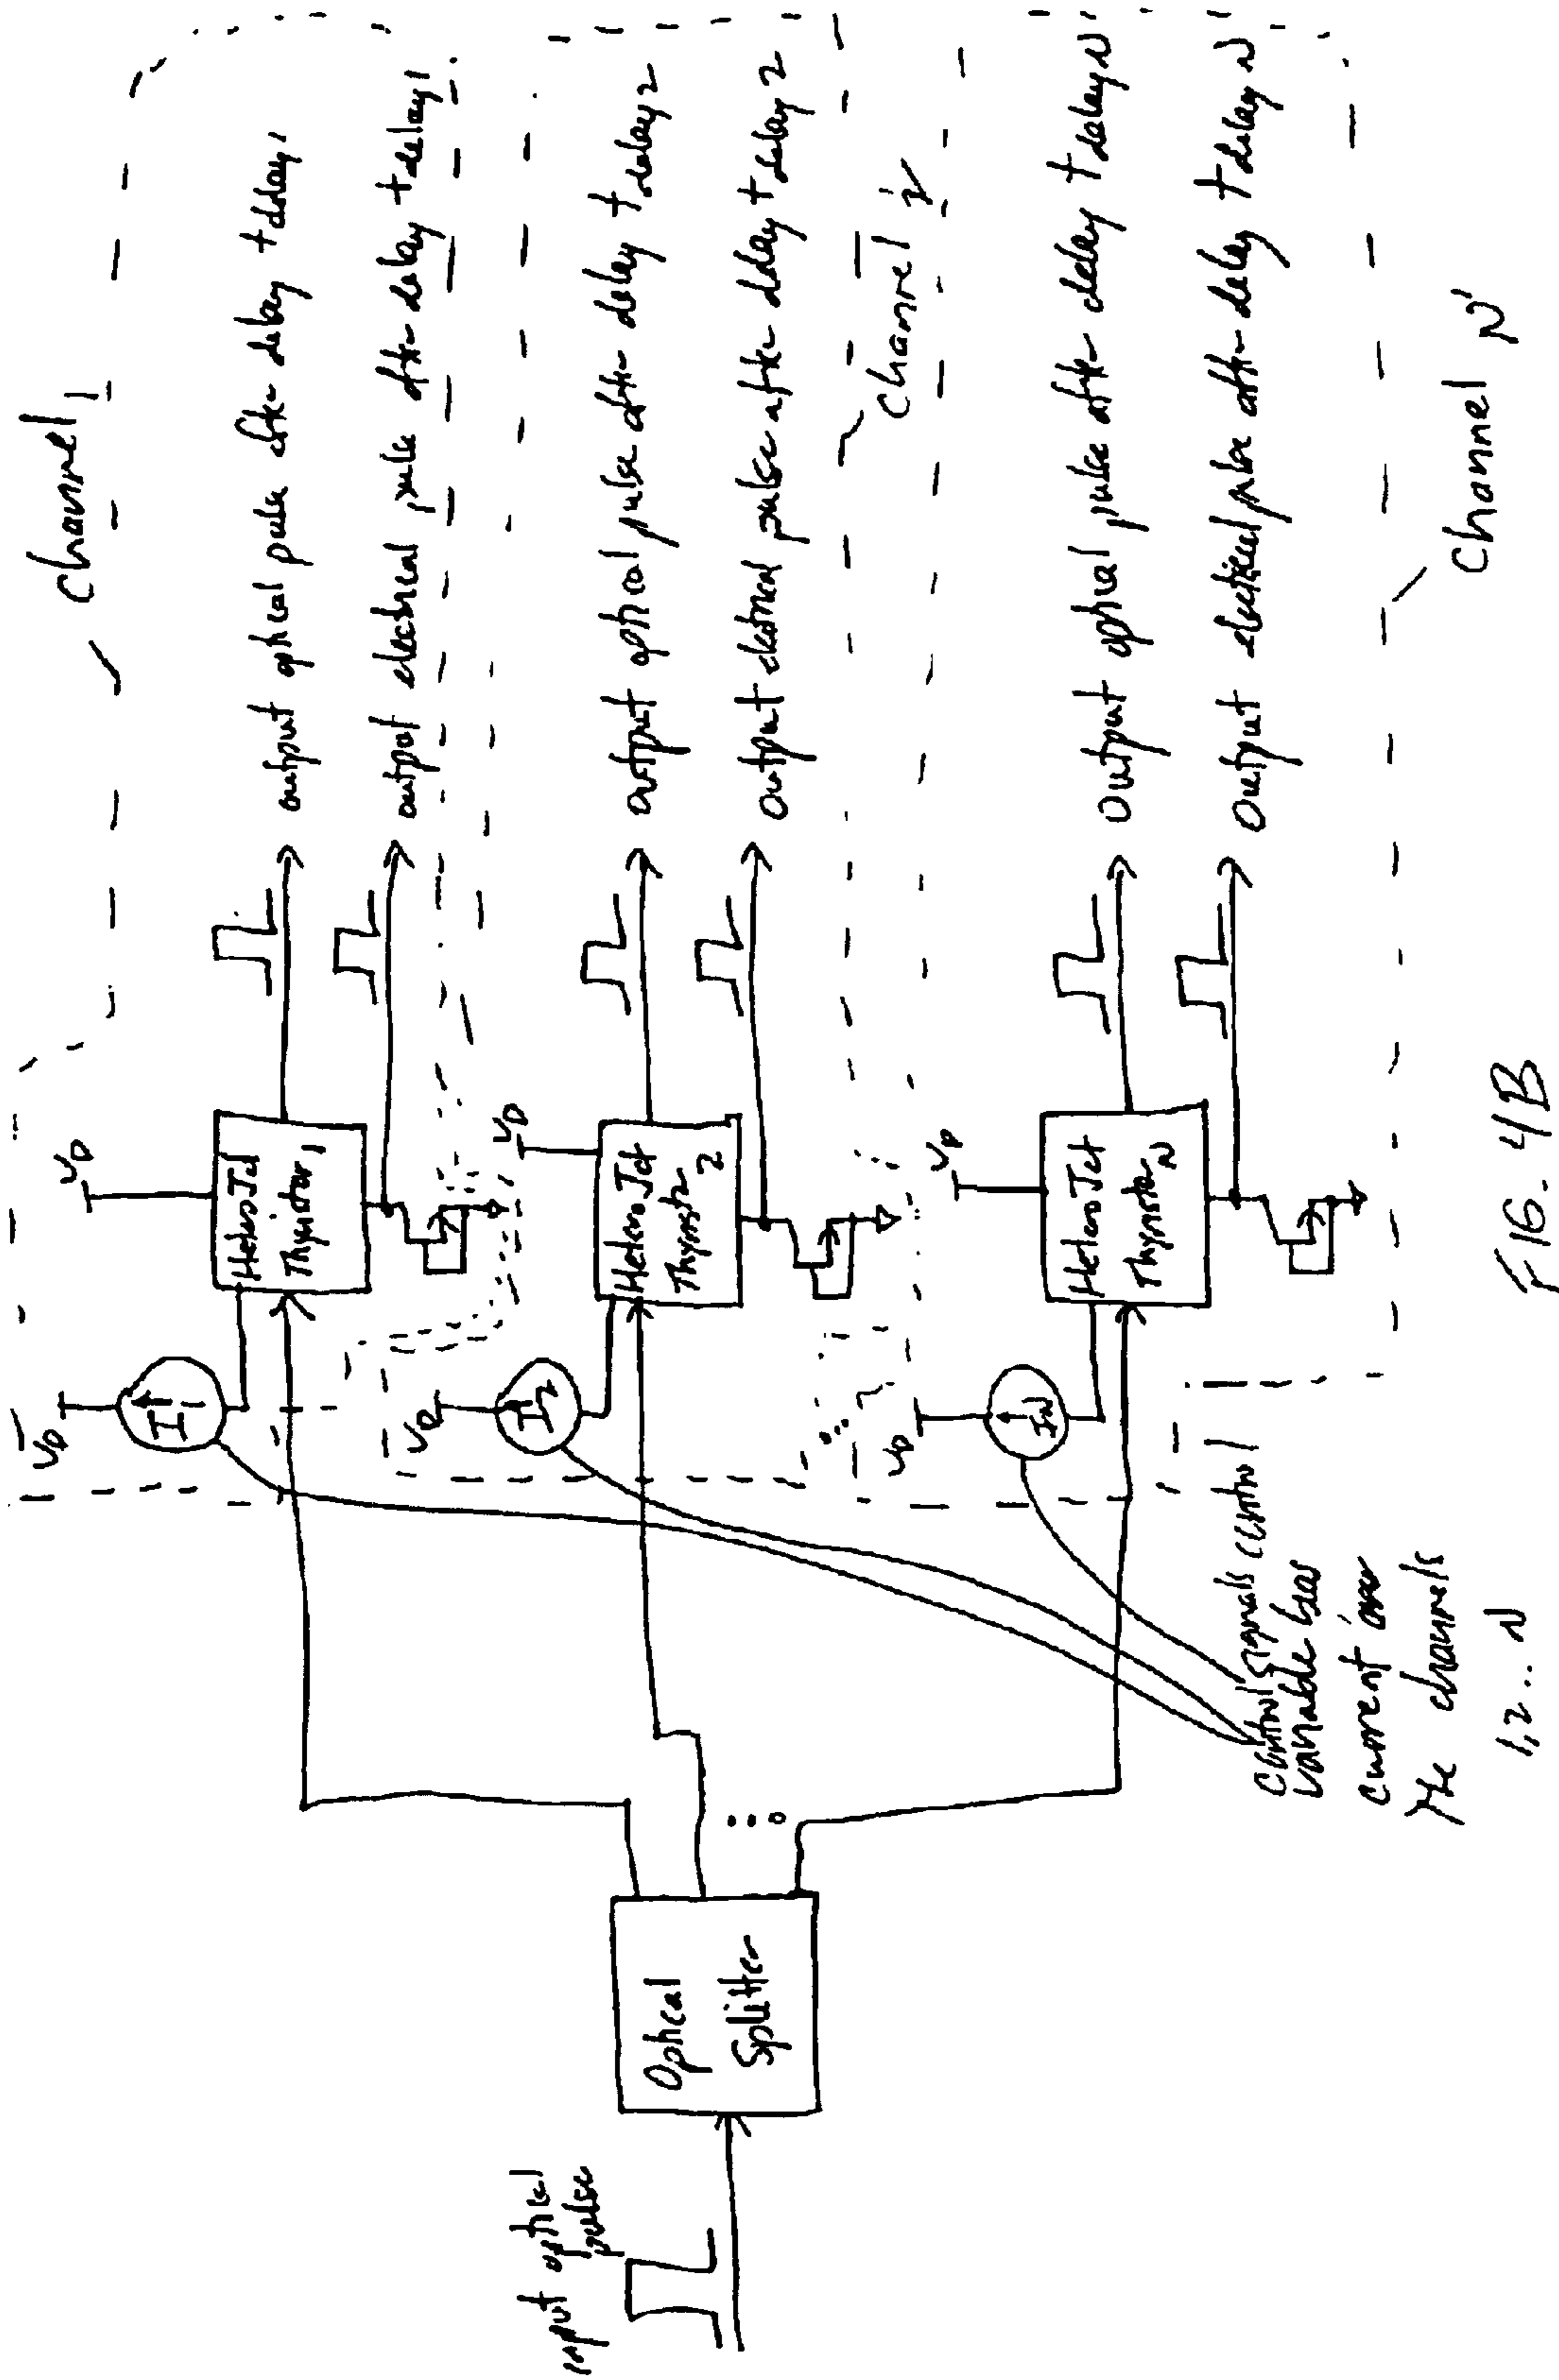 Input optical
pulse
Optical
Splitter
Control signals control
variable bias
current over
the channels
1,2...N
VD
I1
VD
HeteroJct
Thyristor1
output optical pulse after delay tdelay1
output electrical pulse after delay tdelay1
Channel 1
VD
I2
VD
HeteroJct
Thyristr 2
output optical pulse after delay tdelay2
output electrical pulse after delay tdelay2
Channel 2
VD
IN
VD
HeteroJct
Thyristr N
output optical pulse after delay tdelayN
output electrical pulse after delay tdelayN
Channel N
FIG. 4B